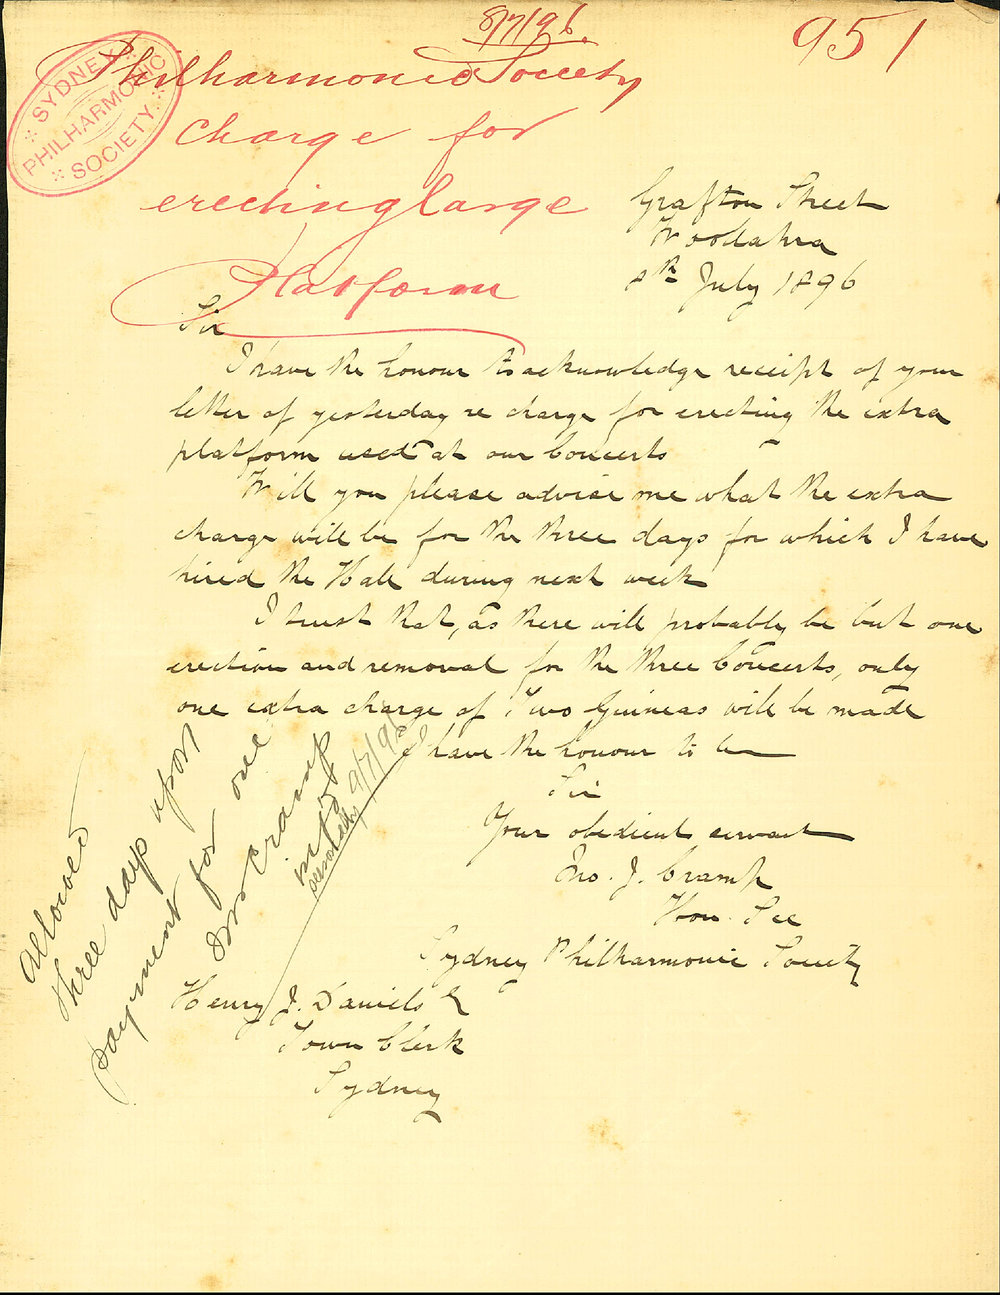 8/7/96.
951
SYDNEY
PHILHARMONIC
SOCIETY.
Philharmonic Society
charge for
erecting large
Platform
Grafton Street
Woollahra
8th July 1896
Sir
I have the honour to acknowledge receipt of your
letter of yesterday re charge for erecting the extra
platform used at our Concerts
Will you please advise me what the extra
charge will be for the three days for which I have
hired the Hall during next week
I trust that, as there will probably be but one
erection and removal for the three Concerts, only
one extra charge of Two Guineas will be made
I have the honour to be
Sir
Your obedient servant
Jno. J. Cramp
Hon. Sec
Sydney Philharmonic Society
Henry J. Daniels
Town Clerk
Sydney
Allowed
three days upon
payment for one
Cramp
personally 9/7/96